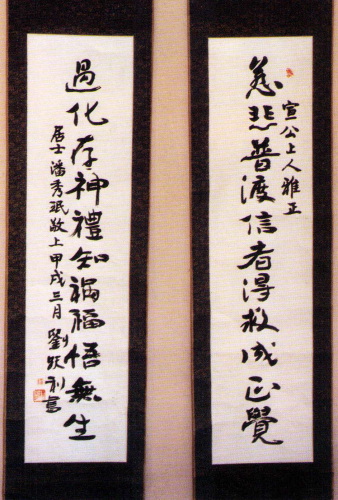 慈悲普渡信者得救成正覺
宣公上人雅正
過化存神禮知禍福悟無生
居士潘秀珉敬上甲戌三月劉